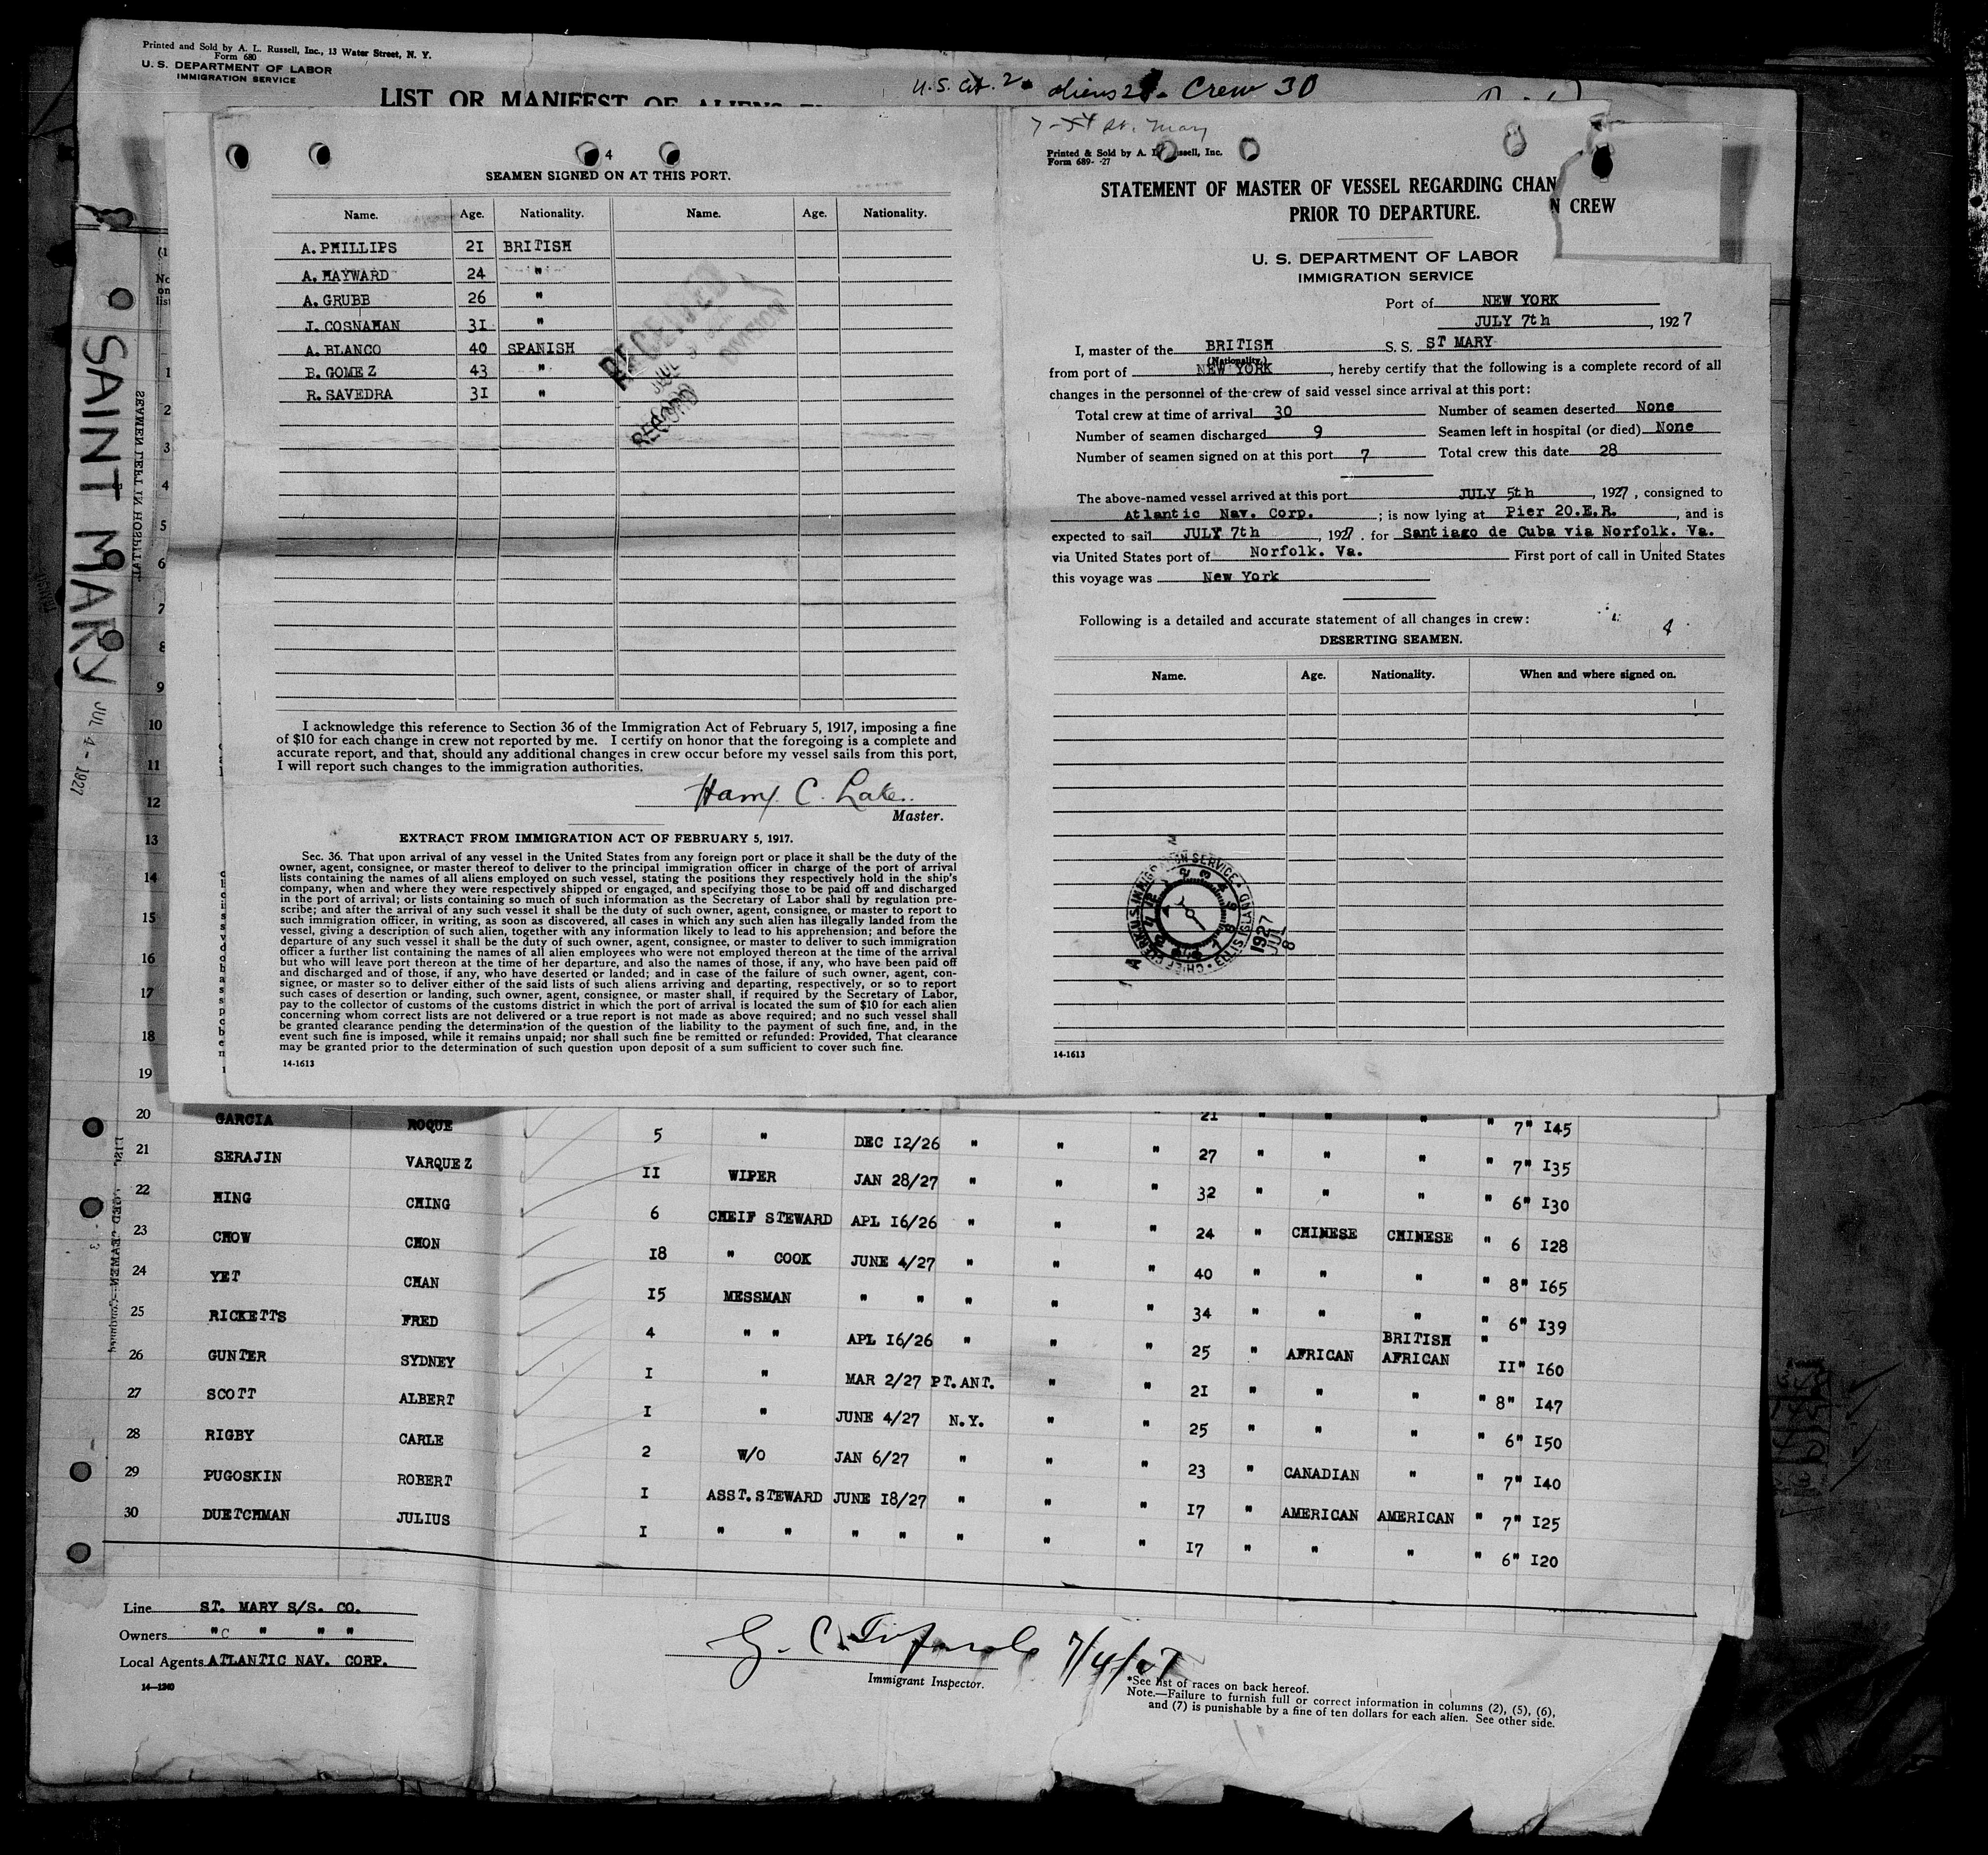 Printed and Sold by A. L. Russell, Inc., 13 Water Street, N. Y.
Form 680
U. S. DEPARTMENT OF LABOR
IMMIGRATION SERVICE
LIST OR MANIFEST OF ALIENS
U.S. Cit. 2. aliens 2 Crew 30
SAINT MARY JUL 4 - 1927
SEAMEN LEFT IN HOSPITAL
4
SEAMEN SIGNED ON AT THIS PORT.
Name. Age. Nationality. Name. Age. Nationality.
A. PHILLIPS 2I BRITISH
A. HAYWARD 24 "
A. GRUBB 26 "
J. COSNAHAN 3I "
A. BLANCO 40 SPANISH
B. GOMEZ 43 "
R. SAVEDRA 3I "
RECEIVED
JUL
DIVISION
RECORD
I acknowledge this reference to Section 36 of the Immigration Act of February 5, 1917, imposing a fine
of $10 for each change in crew not reported by me. I certify on honor that the foregoing is a complete and
accurate report, and that, should any additional changes in crew occur before my vessel sails from this port,
I will report such changes to the immigration authorities.
Harry C. Lake.
Master.
EXTRACT FROM IMMIGRATION ACT OF FEBRUARY 5, 1917.
Sec. 36. That upon arrival of any vessel in the United States from any foreign port or place it shall be the duty of the
owner, agent, consignee, or master thereof to deliver to the principal immigration officer in charge of the port of arrival
lists containing the names of all aliens employed on such vessel, stating the positions they respectively hold in the ship's
company, when and where they were respectively shipped or engaged, and specifying those to be paid off and discharged
in the port of arrival; or lists containing so much of such information as the Secretary of Labor shall by regulation pre-
scribe; and after the arrival of any such vessel it shall be the duty of such owner, agent, consignee, or master to report to
such immigration officer, in writing, as soon as discovered, all cases in which any such alien has illegally landed from the
vessel, giving a description of such alien, together with any information likely to lead to his apprehension; and before the
departure of any such vessel it shall be the duty of such owner, agent, consignee, or master to deliver to such immigration
officer a further list containing the names of all alien employees who were not employed thereon at the time of the arrival
but who will leave port thereon at the time of her departure, and also the names of those, if any, who have been paid off
and discharged and of those, if any, who have deserted or landed; and in case of the failure of such owner, agent, con-
signee, or master so to deliver either of the said lists of such aliens arriving and departing, respectively, or so to report
such cases of desertion or landing, such owner, agent, consignee, or master shall, if required by the Secretary of Labor,
pay to the collector of customs of the customs district in which the port of arrival is located the sum of $10 for each alien
concerning whom correct lists are not delivered or a true report is not made as above required; and no such vessel shall
be granted clearance pending the determination of the question of the liability to the payment of such fine, and, in the
event such fine is imposed, while it remains unpaid; nor shall such fine be remitted or refunded: Provided, That clearance
may be granted prior to the determination of such question upon deposit of a sum sufficient to cover such fine.
14-1613
St. Mary
Printed & Sold by A. L. Russell, Inc.
Form 689- -27
STATEMENT OF MASTER OF VESSEL REGARDING CHAN
N CREW
PRIOR TO DEPARTURE.
U. S. DEPARTMENT OF LABOR
IMMIGRATION SERVICE
Port of NEW YORK
JULY 7th, 1927
I, master of the BRITISH S. S. ST MARY
(Nationality.)
from port of NEW YORK, hereby certify that the following is a complete record of all
changes in the personnel of the crew of said vessel since arrival at this port:
Total crew at time of arrival 30 Number of seamen deserted None
Number of seamen discharged 9 Seamen left in hospital (or died) None
Number of seamen signed on at this port 7 Total crew this date 28
The above-named vessel arrived at this port JULY 5th, 1927, consigned to
Atlantic Nav. Corp. ; is now lying at Pier 20.E.R. , and is
expected to sail JULY 7th, 1927. for Santiago de Cuba via Norfolk. Va.
via United States port of Norfolk. Va. First port of call in United States
this voyage was New York
Following is a detailed and accurate statement of all changes in crew: 4
DESERTING SEAMEN.
Name. Age. Nationality. When and where signed on.
CHIEF CLERK U.S. IMMIGRATION SERVICE • ELLIS ISLAND
1927 JUL 8
14-1613
1
2
3
4
5
6
7
8
9
10
11
12
13
14
15
16
17
18
19
20 GARCIA ROQUE 5 " DEC I2/26 " " " 21 " " " " 7" I45
21 SERAJIN VARQUEZ II WIPER JAN 28/27 " " " 27 " " " " 7" I35
22 HING CHING 6 CHEIF STEWARD APL I6/26 " " " 32 " " " " 6" I30
23 CHOW CHON I8 " COOK JUNE 4/27 " " " 24 " CHINESE CHINESE " 6 I28
24 YET CHAN I5 MESSMAN " " " " " 40 " " " " 8" I65
25 RICKETTS FRED 4 " " APL I6/26 " " " 34 " " " " 6" I39
26 GUNTER SYDNEY I " MAR 2/27 PT.ANT. " " 25 " AFRICAN BRITISH AFRICAN " II" I60
27 SCOTT ALBERT I " JUNE 4/27 N.Y. " " 2I " " " " 8" I47
28 RIGBY CARLE 2 W/O JAN 6/27 " " " 25 " " " " 6" I50
29 PUGOSKIN ROBERT I ASST.STEWARD JUNE I8/27 " " " 23 " CANADIAN " " 7" I40
30 DUETCHMAN JULIUS I " " " " " " " I7 " AMERICAN AMERICAN " 7" I25
I7 " " " " 6" I20
Line ST. MARY S/S. CO.
Owners "C " " "
Local Agents ATLANTIC NAV. CORP.
14—1240
7/4/27
Immigrant Inspector.
*See list of races on back hereof.
Note.—Failure to furnish full or correct information in columns (2), (5), (6),
and (7) is punishable by a fine of ten dollars for each alien. See other side.